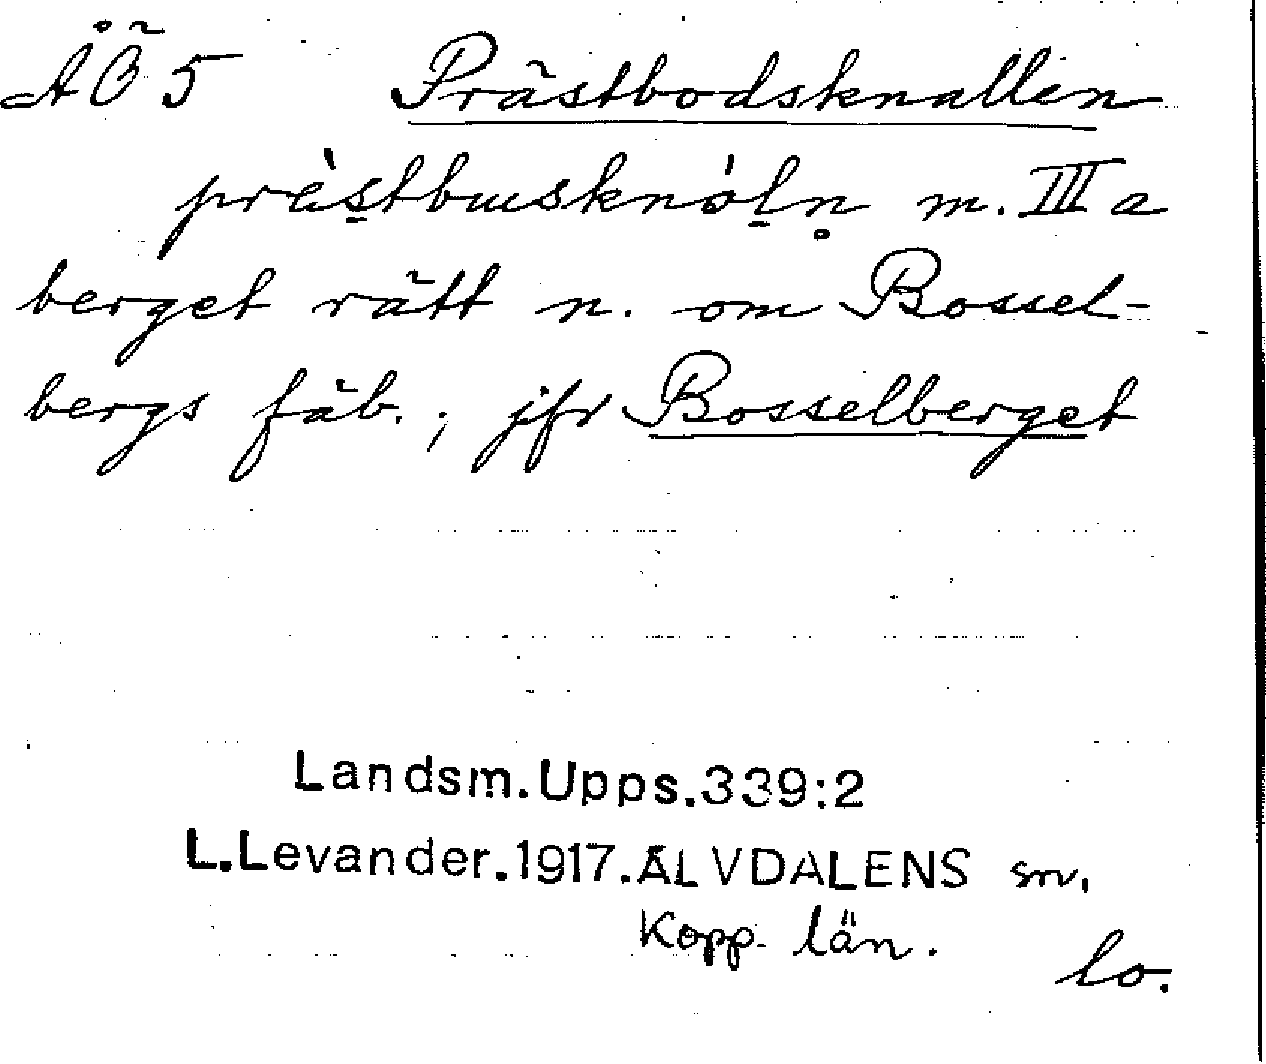 ÅÖ 5 Prästbodsknallen
prä̀s̱tbusknóḻn̥ m. III a
berget rätt n. om Bossel-
bergs fäb. ; jfr Bosselberget
Landsm.Upps.339:2
L.Levander.1917.ÄLVDALENS sn,
Kopp. län.
lo.